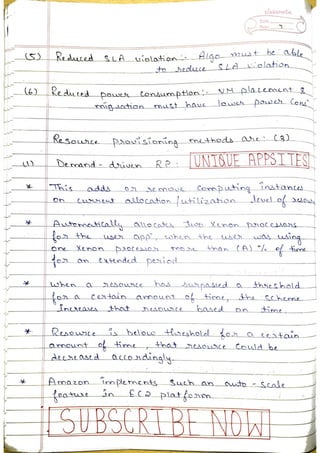 classmate
Date
Page
(5) Reduced SLA violation :- Algo must be able
to reduce SLA violation
(6) Reduced power consumption :- VM placement &
migration must have lower power cons
Resource provisioning methods are : (3)
(1) Demand - driven RP :
UNIQUE APPSITES
* This adds or remove computing instances
on current allocation / utilization level of resou
* Automatically allocates Two Xenon processors
for the user app', when the user was using
one Xenon processor more than (A) % of time
for an extended period
* When a resource has surpassed a threshold
for a certain amount of time, the scheme
increases that resource based on time.
* Resource is below threshold for a certain
amount of time, that resource could be
decreased accordingly.
* Amazon implements such an auto - scale
feature in EC2 platform.
SUBSCRIBE NOW